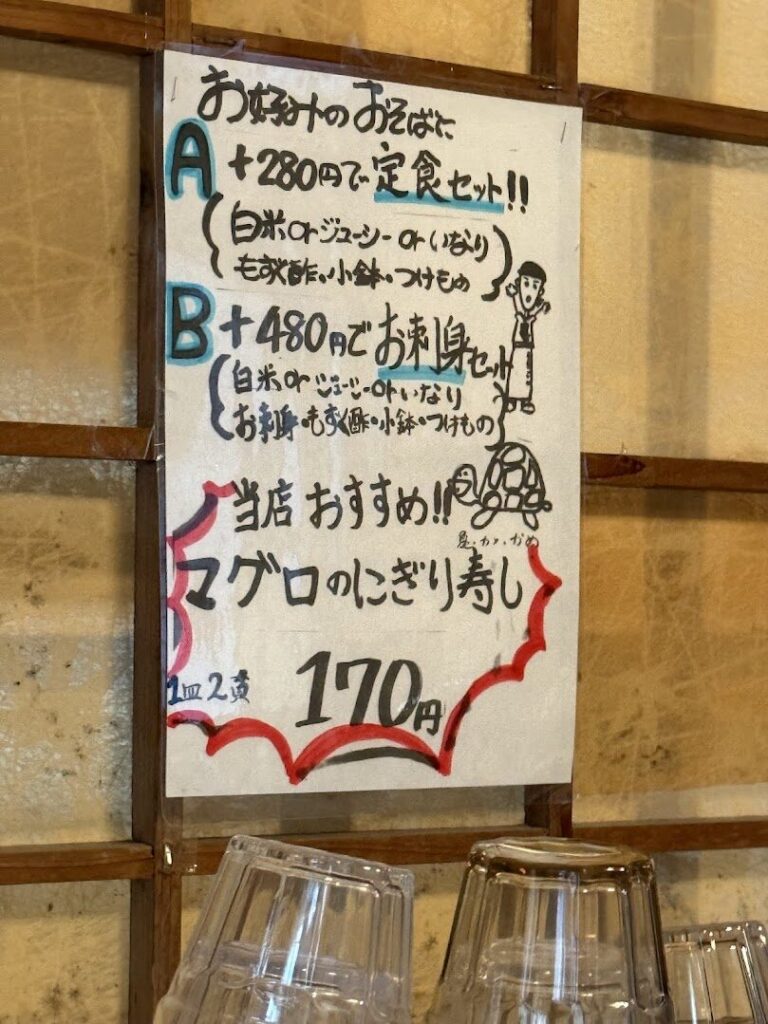 お好みのおそばに
A +280円で定食セット!!
(白米orジューシーorいなり
もずく酢・小鉢・つけもの)
B +480円でお刺身セット
(白米orジューシーorいなり
お刺身・もずく酢・小鉢・つけもの)
当店おすすめ!!
マグロのにぎり寿し
1皿2貫 170円